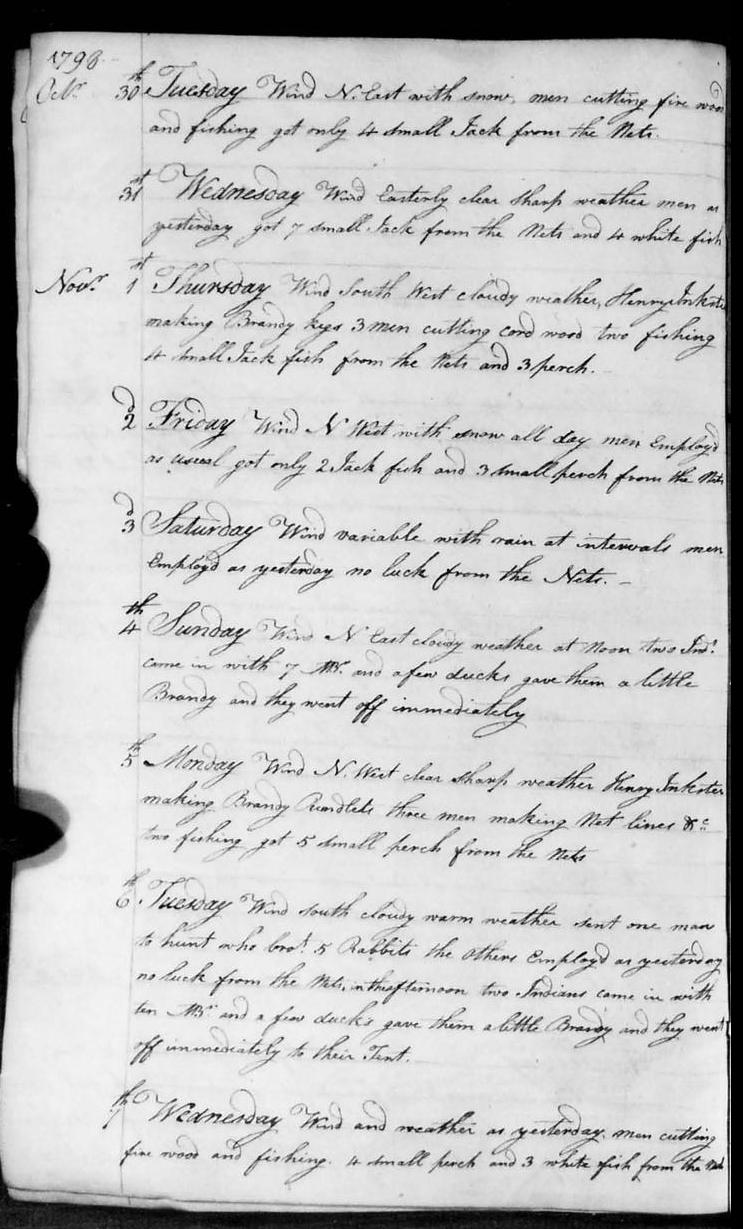 1798
Octr. 30th Tuesday Wind N. East with snow, men cutting fire wood
and fishing got only 4 small Jack from the Nets.
31st Wednesday Wind Easterly clear sharp weather men as
yesterday got 7 small Jack from the Nets and 4 white fish
Novr. 1st Thursday Wind South West cloudy weather, Henry Inkster
making Brandy kegs 3 men cutting cord wood two fishing
4 small Jack fish from the Nets and 3 perch.
2d Friday Wind N West with snow all day men Employd
as usual got only 2 Jack fish and 3 small perch from the Nets
3d Saturday Wind variable with rain at intervals men
Employd as yesterday no luck from the Nets. -
4th Sunday Wind N East cloudy weather at Noon two Inds.
came in with 7 MBr. and a few ducks gave them a little
Brandy and they went off immediately
5th Monday Wind N. West clear sharp weather Henry Inkster
making Brandy Rundlets three men making Net lines &c
two fishing got 5 small perch from the Nets
6th Tuesday Wind south cloudy warm weather sent one man
to hunt who brot. 5 Rabbits the others Employd as yesterday
no luck from the Nets, in the afternoon two Indians came in with
ten MBr. and a few ducks gave them a little Brandy and they went
off immediately to their Tent.
7th Wednesday Wind and weather as yesterday, men cutting
fire wood and fishing. 4 small perch and 3 white fish from the Nets